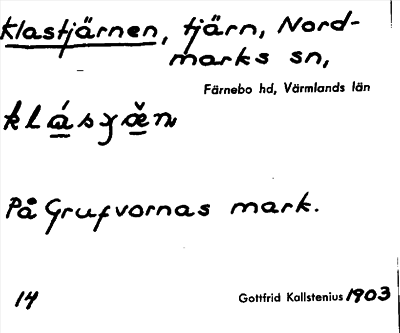 Klastjärnen, tjärn, Nord-
marks sn,
Färnebo hd, Värmlands län
På Grufvornas mark.
14 Gottfrid Kallstenius 1903